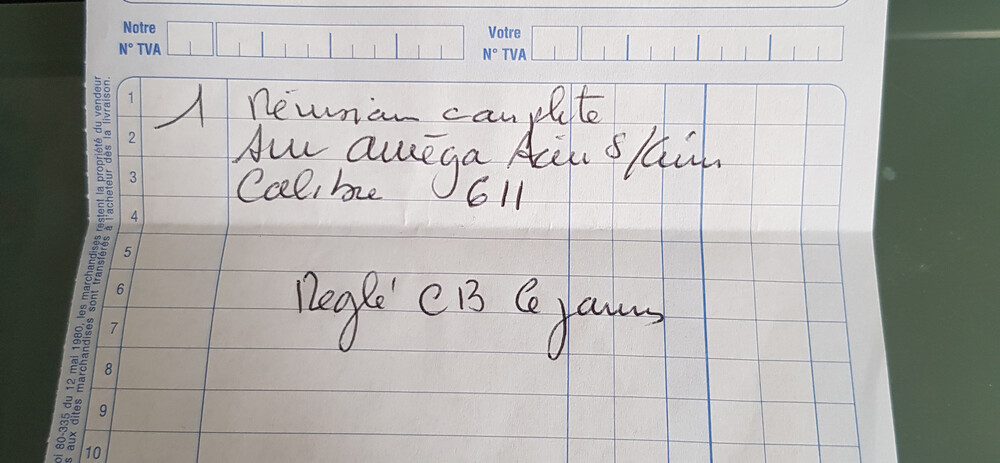 Notre
N° TVA
Votre
N° TVA
1 1 Révision complète
2 Sur oméga Acier s/Cuir
3 Calibre 611
4
5
6 Reglé CB Ce jour
7
8
9
10
oi 80-335 du 12 mai 1980, les marchandises restent la propriété du vendeur
aux dites marchandises sont transférés à l'acheteur dès la livraison.